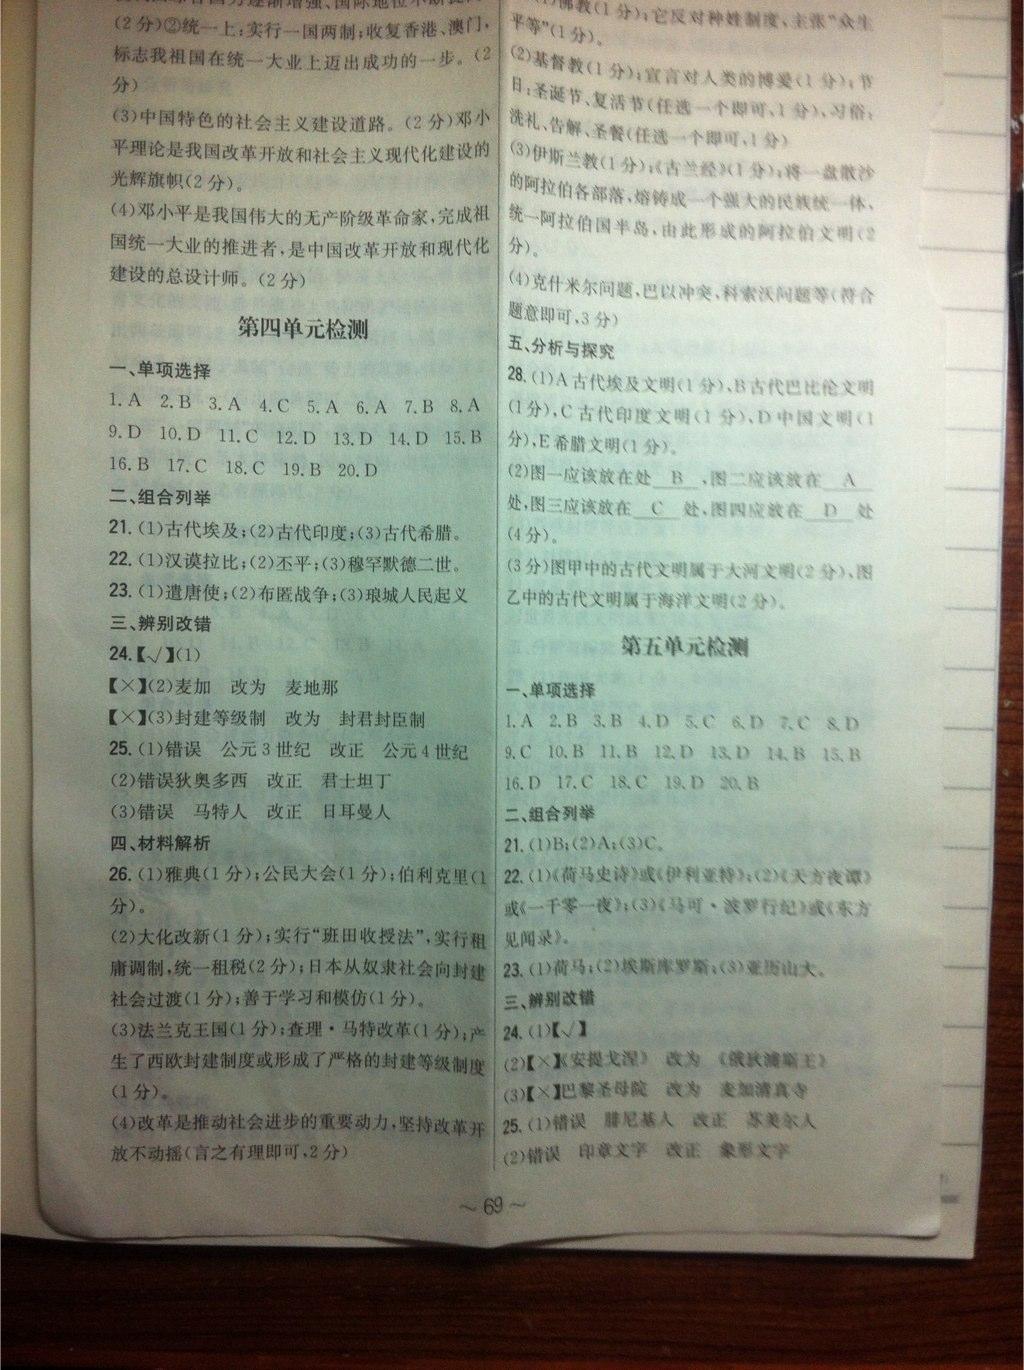 (2分)②统一上:实行一国两制;收复香港、澳门,
标志我祖国在统一大业上迈出成功的一步。(2
分)
(3)中国特色的社会主义建设道路。(2分)邓小
平理论是我国改革开放和社会主义现代化建设的
光辉旗帜(2分)。
(4)邓小平是我国伟大的无产阶级革命家,完成祖
国统一大业的推进者,是中国改革开放和现代化
建设的总设计师。(2分)
第四单元检测
一、单项选择
1.A 2.B 3.A 4.C 5.A 6.A 7.B 8.A
9.D 10.D 11.C 12.D 13.D 14.D 15.B
16.B 17.C 18.C 19.B 20.D
二、组合列举
21.(1)古代埃及;(2)古代印度;(3)古代希腊。
22.(1)汉谟拉比;(2)丕平;(3)穆罕默德二世。
23.(1)遣唐使;(2)布匿战争;(3)琅城人民起义
三、辨别改错
24.【√】(1)
【×】(2)麦加 改为 麦地那
【×】(3)封建等级制 改为 封君封臣制
25.(1)错误 公元3世纪 改正 公元4世纪
(2)错误狄奥多西 改正 君士坦丁
(3)错误 马特人 改正 日耳曼人
四、材料解析
26.(1)雅典(1分);公民大会(1分);伯利克里(1
分)。
(2)大化改新(1分);实行“班田收授法”,实行租
庸调制,统一租税(2分);日本从奴隶社会向封建
社会过渡(1分);善于学习和模仿(1分)。
(3)法兰克王国(1分);查理·马特改革(1分);产
生了西欧封建制度或形成了严格的封建等级制度
(1分)。
(4)改革是推动社会进步的重要动力,坚持改革开
放不动摇(言之有理即可,2分)
(1)佛教(1分);它反对种姓制度,主张“众生
平等”(1分)。
(2)基督教(1分);宣言对人类的博爱(1分);节
日:圣诞节、复活节(任选一个即可,1分)、习俗:
洗礼、告解、圣餐(任选一个即可,1分)
(3)伊斯兰教(1分);《古兰经》(1分);将一盘散沙
的阿拉伯各部落,熔铸成一个强大的民族统一体,
统一阿拉伯国半岛,由此形成的阿拉伯文明(2
分)。
(4)克什米尔问题、巴以冲突、科索沃问题等(符合
题意即可,3分)
五、分析与探究
28.(1)A古代埃及文明(1分)、B古代巴比伦文明
(1分),C古代印度文明(1分)、D中国文明(1
分)、E希腊文明(1分)。
(2)图一应该放在处 B ,图二应该放在 A
处,图三应该放在 C 处,图四应放在 D 处
(4分)。
(3分)图甲中的古代文明属于大河文明(2分)、图
乙中的古代文明属于海洋文明(2分)。
第五单元检测
一、单项选择
1.A 2.B 3.B 4.D 5.C 6.D 7.C 8.D
9.C 10.B 11.B 12.D 13.D 14.B 15.B
16.D 17.C 18.C 19.D 20.B
二、组合列举
21.(1)B;(2)A;(3)C。
22.(1)《荷马史诗》或《伊利亚特》;(2)《天方夜谭》
或《一千零一夜》;(3)《马可·波罗行纪》或《东方
见闻录》。
23.(1)荷马;(2)埃斯库罗斯;(3)亚历山大。
三、辨别改错
24.(1)【√】
(2)【×】《安提戈涅》 改为 《俄狄浦斯王》
(3)【×】巴黎圣母院 改为 麦加清真寺
25.(1)错误 腓尼基人 改正 苏美尔人
(2)错误 印章文字 改正 象形文字
~69~